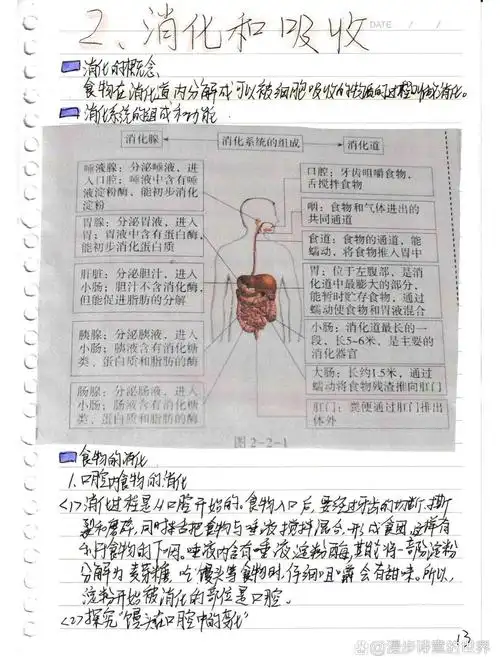 2、消化和吸收
DATE / /
消化的概念
食物在消化道内分解成可以被细胞吸收的物质的过程叫做消化。
消化系统的组成和功能
消化腺
消化系统的组成
消化道
唾液腺：分泌唾液，进
入口腔；唾液中含有唾
液淀粉酶，能初步消化
淀粉
胃腺：分泌胃液，进入
胃；胃液中含有蛋白酶，
能初步消化蛋白质
肝脏：分泌胆汁，进入
小肠；胆汁不含消化酶，
但能促进脂肪的分解
胰腺：分泌胰液，进入
小肠；胰液含有消化糖
类、蛋白质和脂肪的酶
肠腺：分泌肠液，进入
小肠；肠液含有消化糖
类、蛋白质和脂肪的酶
口腔：牙齿咀嚼食物，
舌搅拌食物
咽：食物和气体进出的
共同通道
食道：食物的通道，能
蠕动，将食物推入胃中
胃：位于左腹部，是消
化道中最膨大的部分，
能暂时贮存食物，通过
蠕动使食物和胃液混合
小肠：消化道最长的一
段，长5~6米，是主要的
消化器官
大肠：长约1.5米，通过
蠕动将食物残渣推向肛门
肛门：粪便通过肛门排出
体外
图2-2-1
食物的消化
1.口腔内食物的消化
<1>消化过程是从口腔开始的。食物入口后，要经过牙齿的切断、撕
裂和磨碎，同时舌把食物与唾液搅拌混合，形成食团，这样有
利于食物的下咽。唾液内含有唾液淀粉酶，其能将一部分淀粉
分解为麦芽糖，吃馒头等食物时，仔细咀嚼会有甜味。所以，
淀粉开始被消化的部位是口腔。
<2>探究"馒头在口腔中的变化"
13
漫步诗意的世界